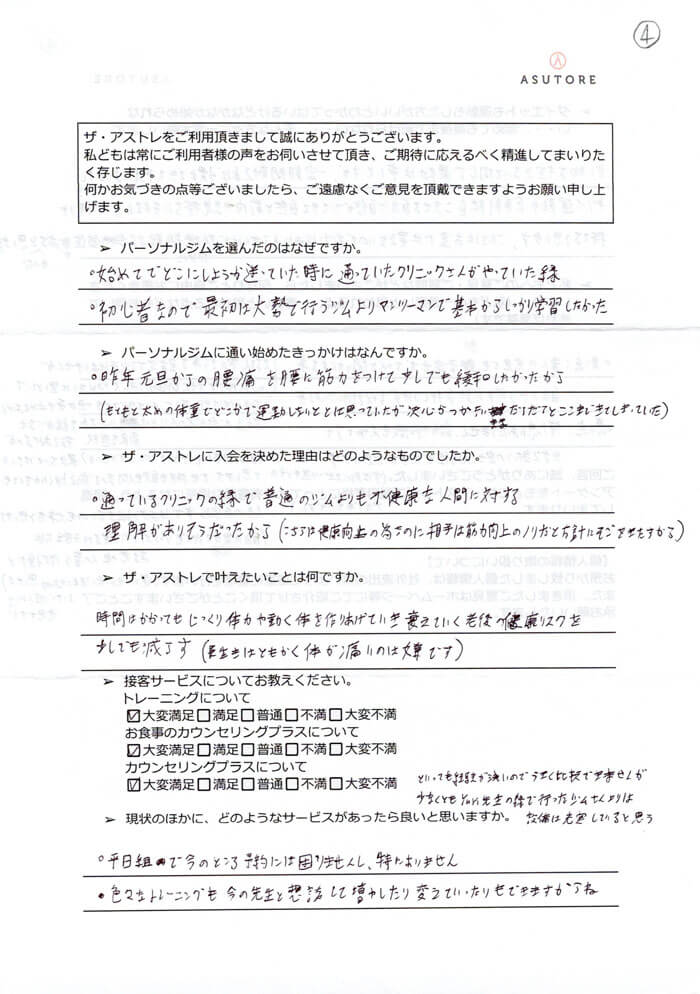 ④
ASUTORE
ザ・アストレをご利用頂きまして誠にありがとうございます。
私どもは常にご利用者様の声をお伺いさせて頂き、ご期待に応えるべく精進してまいりた
く存じます。
何かお気づきの点等ございましたら、ご遠慮なくご意見を頂戴できますようお願い申し上
げます。
➢ パーソナルジムを選んだのはなぜですか。
○始めてでどこにしようか迷っていた時に通っていたクリニックさんがやっていた縁
○初心者なので最初は大勢で行うジムよりマンツーマンで基本からしっかり学習したかった
➢ パーソナルジムに通い始めたきっかけはなんですか。
○昨年元旦からの腰痛を腰に筋力をつけて少しでも緩和したかったから
(もともと太めの体重でどこかで運動しないととは思っていたが決心がつかず
➢ ザ・アストレに入会を決めた理由はどのようなものでしたか。
○通っているクリニックの縁で普通のジムよりも不健康な人間に対する
理解がありそうだったから(こちらは健康向上の為なのに相手は筋力向上のノリだと方針に
➢ ザ・アストレで叶えたいことは何ですか。
時間はかかってもじっくり体力や動く体を作りあげていき衰えていく老後の健康リスクを
少しでも減らす(長生きはともかく体が痛いのは大変です)
➢ 接客サービスについてお教えください。
トレーニングについて
☑大変満足□満足□普通□不満□大変不満
お食事のカウンセリングプラスについて
☑大変満足□満足□普通□不満□大変不満
カウンセリングプラスについて
☑大変満足□満足□普通□不満□大変不満
といっても経験が浅いので うまく比較できませんが
少なくとも 先生の縁で行ったジムさんよりは
➢ 現状のほかに、どのようなサービスがあったら良いと思いますか。
設備は充実していると思う
○平日組で今のところ予約には困りませんし、特にありません
●色々なトレーニングも今の先生と相談して増やしたり変えていったりもできますからね